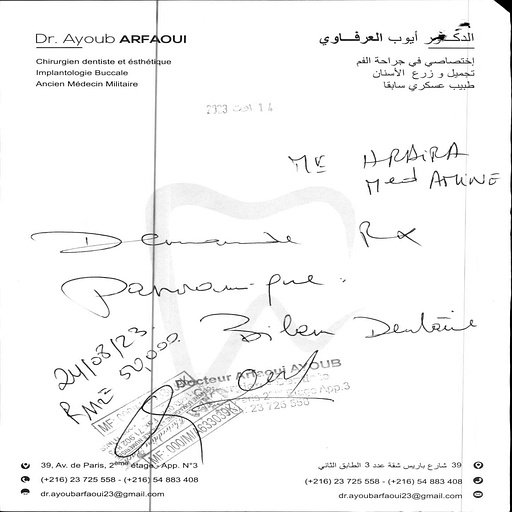 Dr. Ayoub ARFAOUI
الدكتور أيوب العرفاوي
Chirurgien dentiste et ésthétique
Implantologie Buccale
Ancien Médecin Militaire
إختصاصي في جراحة الفم
تجميل و زرع الأسنان
طبيب عسكري سابقا
14 اوت 2023
Mr HRAIRA
Med AMINE
Demande Rx
Panoramique.
Bilan Dentaire
24/08/23.
50,000
Docteur Arfaoui AYOUB
App.3
23 728 550
39, Av. de Paris, 2ème étage - App. N°3
(+216) 23 725 558 - (+216) 54 883 408
dr.ayoubarfaoui23@gmail.com
39 شارع باريس شقة عدد 3 الطابق الثاني
(+216) 23 725 558 - (+216) 54 883 408
dr.ayoubarfaoui23@gmail.com